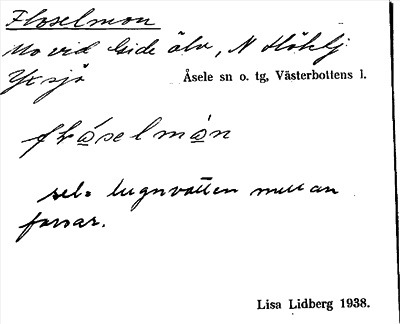 Floselmon
Mo vid Gide älv, N Hökbj.
Yxsjö
Åsele sn o. tg, Västerbottens l.
sel = lugnvatten mellan
forsar.
Lisa Lidberg 1938.